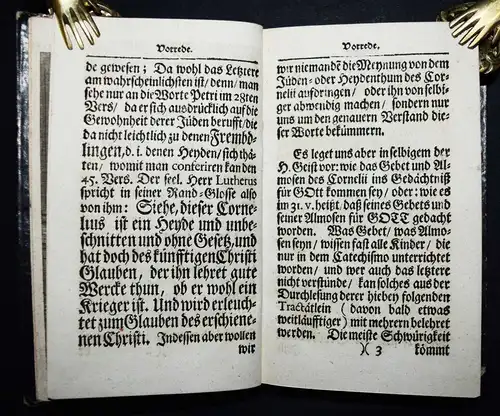 Vorrede.
de gewesen; Da wohl das Letztere
am wahrscheinlichsten ist/ denn/ man
sehe nur an die Worte Petri im 28sten
Vers/ da er sich ausdrücklich auf die
Gewohnheit derer Jüden berufft/ die
da nicht leichtlich zu denen Frembd-
lingen, d. i. denen Heyden/ sich thä-
ten/ womit man conferiren kan den
45. Vers. Der seel. Herr Lutherus
spricht in seiner Rand-Glosse also
von ihm: Siehe, dieser Corne-
lius ist ein Heyde und unbe-
schnitten und ohne Gesetz, und
hat doch des künfftigen Christi
Glauben, der ihn lehret gute
Wercke thun, ob er wohl ein
Krieger ist. Und wird erleuch-
tet zum Glauben des erschiene-
nen Christi. Indessen aber wollen
wir
Vorrede.
wir niemandẽ die Meynung von dem
Jüden- oder Heydenthum des Cor-
nelii aufdringen/ oder ihn von selbi-
ger abwendig machen/ sondern nur
uns um den genauern Verstand die-
ser Worte bekümmern.
Es leget uns aber in selbigem der
H. Geist vor: wie das Gebet und Al-
mosen des Cornelii ins Gedächtniß
für GOtt kommen sey/ oder: wie es
im 31. v. heißt, daß seines Gebets und
seiner Almosen für GOTT gedacht
worden. Was Gebet/ was Almo-
sen seyn/ wissen fast alle Kinder/ die
nur in dem Catechismo unterrichtet
worden/ und wer auch das letztere
nicht verstünde/ kan solches aus der
Durchlesung derer hiebey folgenden
Tractätlein (davon bald etwas
weitläufftiger) mit mehrern belehret
werden. Die meiste Schwürigkeit
)( 3 kömmt